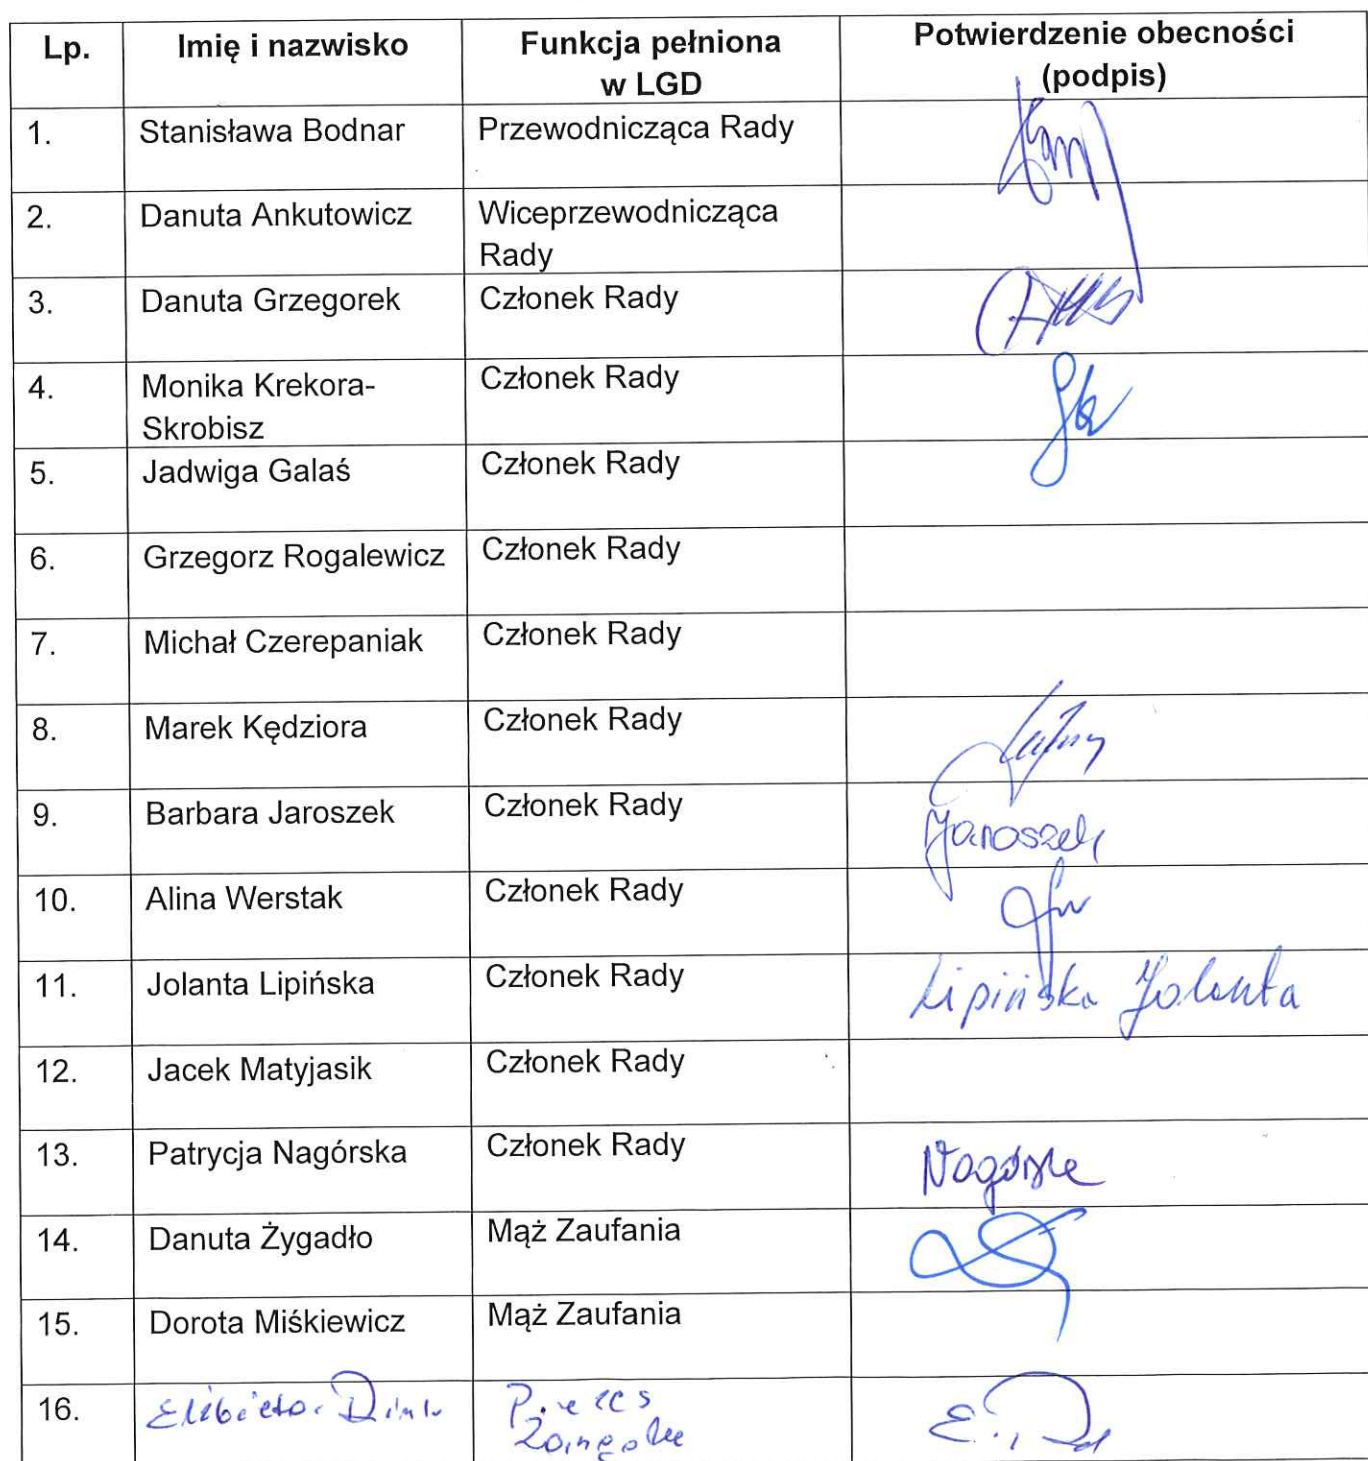 Lp. Imię i nazwisko Funkcja pełniona Potwierdzenie obecności
w LGD (podpis)
1. Stanisława Bodnar Przewodnicząca Rady
2. Danuta Ankutowicz Wiceprzewodnicząca
Rady
3. Danuta Grzegorek Członek Rady
4. Monika Krekora- Członek Rady
Skrobisz
5. Jadwiga Galaś Członek Rady
6. Grzegorz Rogalewicz Członek Rady
7. Michał Czerepaniak Członek Rady
8. Marek Kędziora Członek Rady
9. Barbara Jaroszek Członek Rady Jaroszek
10. Alina Werstak Członek Rady
11. Jolanta Lipińska Członek Rady Lipińska Jolanta
12. Jacek Matyjasik Członek Rady
13. Patrycja Nagórska Członek Rady Nagórska
14. Danuta Żygadło Mąż Zaufania
15. Dorota Miśkiewicz Mąż Zaufania
16. Elżbieta Prezes
Zarządu